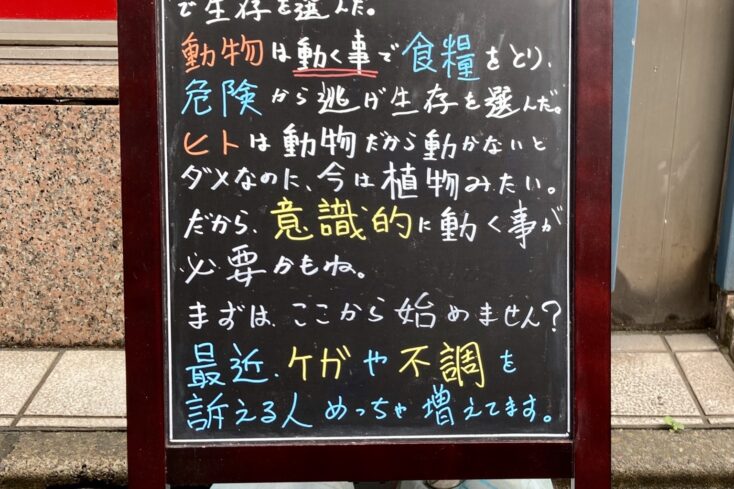 で生存を選んだ。
動物は動く事で食糧をとり、
危険から逃げ生存を選んだ。
ヒトは動物だから動かないと
ダメなのに、今は植物みたい。
だから、意識的に動く事が
必要かもね。
まずは、ここから始めません?
最近、ケガや不調を
訴える人めっちゃ増えてます。